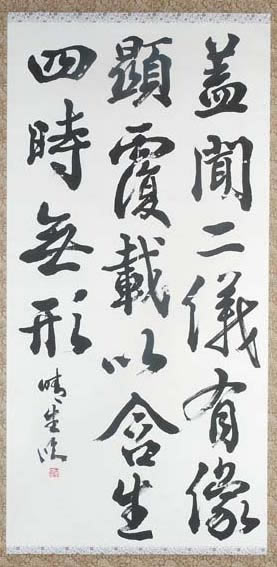 蓋聞二儀有像
顯覆載以含生
四時無形